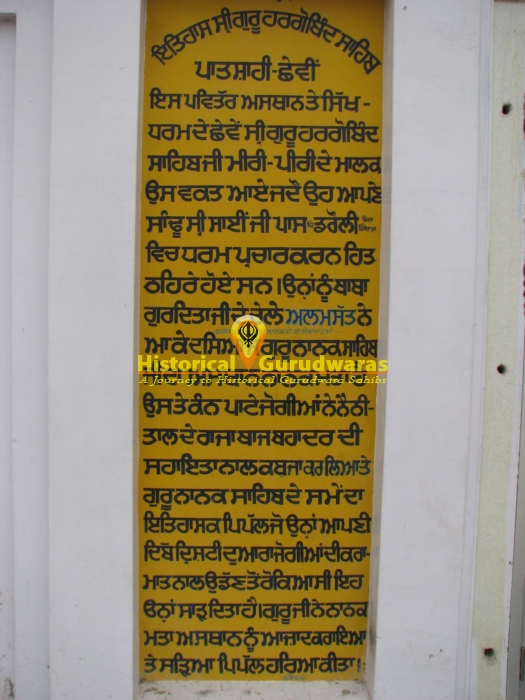 ਇਤਿਹਾਸ ਸ੍ਰੀ ਗੁਰੂ ਹਰਗੋਬਿੰਦ ਸਾਹਿਬ
ਪਾਤਸ਼ਾਹੀ-ਛੇਵੀਂ
ਇਸ ਪਵਿੱਤਰ ਅਸਥਾਨ ਤੇ ਸਿੱਖ -
ਧਰਮ ਦੇ ਛੇਵੇਂ ਸ੍ਰੀ ਗੁਰੂ ਹਰਗੋਬਿੰਦ
ਸਾਹਿਬ ਜੀ ਮੀਰੀ - ਪੀਰੀ ਦੇ ਮਾਲਕ
ਉਸ ਵਕਤ ਆਏ ਜਦੋਂ ਉਹ ਆਪਣੇ
ਸਾਂਢੂ ਸ੍ਰੀ ਸਾਈਂ ਜੀ ਪਾਸ ਡਰੌਲੀ
ਵਿਚ ਧਰਮ ਪ੍ਰਚਾਰ ਕਰਨ ਹਿਤ
ਠਹਿਰੇ ਹੋਏ ਸਨ । ਉਨ੍ਹਾਂ ਨੂੰ ਬਾਬਾ
ਗੁਰਦਿਤਾ ਜੀ ਦੇ ਚੇਲੇ ਅਲਮਸੱਤ ਨੇ
ਆ ਕੇ ਦਸਿਆ ਗੁਰੂ ਨਾਨਕ ਸਾਹਿਬ
Historical Gurudwaras
A Journey to Historical Gurudwara Sahibs
ਉਸ ਤੇ ਕੰਨ ਪਾਟੇ ਜੋਗੀਆਂ ਨੇ ਨੈਨੀ-
ਤਾਲ ਦੇ ਰਾਜਾ ਬਾਜ ਬਹਾਦਰ ਦੀ
ਸਹਾਇਤਾ ਨਾਲ ਕਬਜਾ ਕਰ ਲਿਆ ਤੇ
ਗੁਰੂ ਨਾਨਕ ਸਾਹਿਬ ਦੇ ਸਮੇਂ ਦਾ
ਇਤਿਹਾਸਕ ਪਿਪੱਲ ਜੋ ਉਨਾਂ ਆਪਣੀ
ਦਿਬੱ ਦ੍ਰਿਸ਼ਟੀ ਦੁਆਰਾ ਜੋਗੀਆਂ ਦੀ ਕਰਾ-
ਮਾਤ ਨਾਲ ਉਡੱਣ ਤੋਂ ਰੋਕਿਆ ਸੀ ਇਹ
ਓਨ੍ਹਾਂ ਸਾੜ ਦਿਤਾ ਹੈ। ਗੁਰੂ ਜੀ ਨੇ ਨਾਨਕ
ਮਤਾ ਅਸਥਾਨ ਨੂੰ ਆਜਾਦ ਕਰਾਇਆ
ਤੇ ਸੜਿਆ ਪਿਪੱਲ ਹਰਿਆ ਕੀਤਾ।